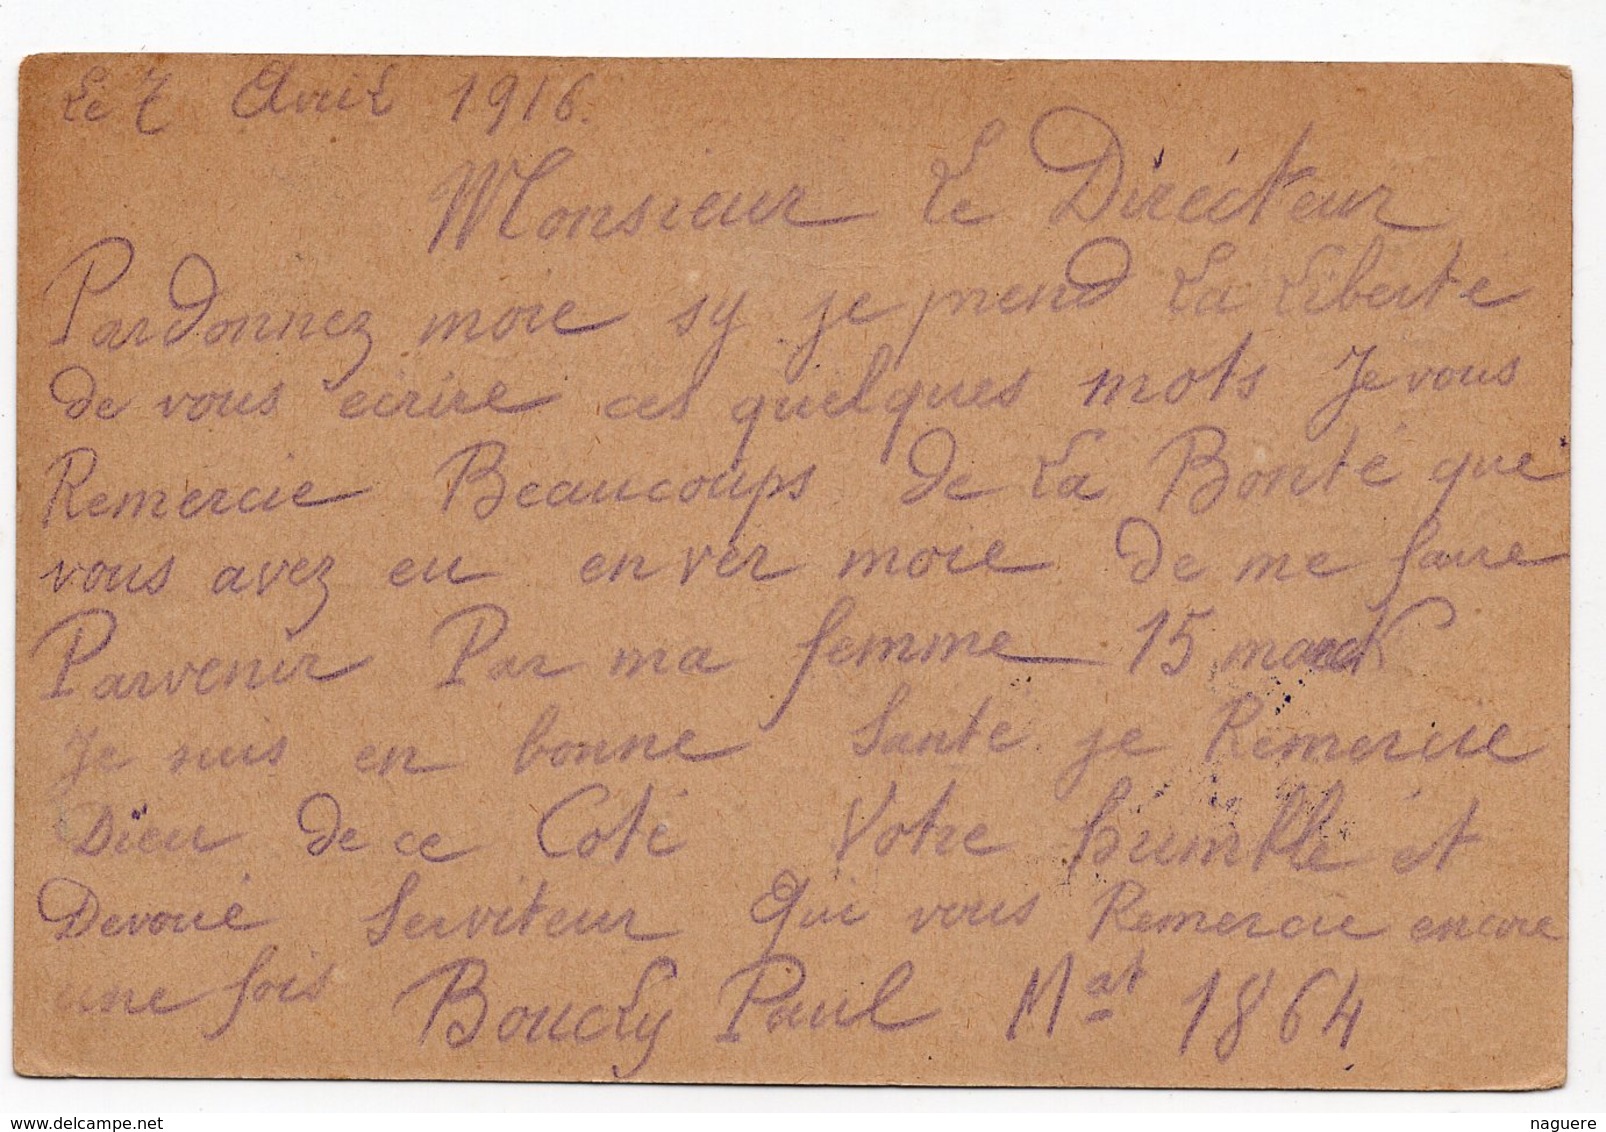 Le 7 Avril 1916.
Monsieur Le Directeur
Pardonnez moie sy je prend La Liberte
de vous eirire ces quelques mots Je vous
Remercie Beaucoups de La Bonté que
vous avez eu en ver moie de me faire
Parvenir Par ma femme 15 marck
Je suis en bonne Santé je Remercie
Dieu de ce Coté Votre humble et
Devoué Serviteur Qui vous Remercie encore
une fois Boucly Paul Mat 1864
delcampe.net
naguere